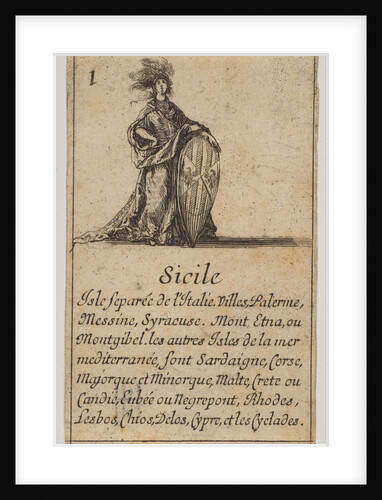 1
Sicile
Isle separée de l'Italie. Villes, Palerme,
Messine, Syracuse. Mont Etna, ou
Montgibel. les autres Isles de la mer
mediterranée, sont Sardaigne, Corse,
Majorque et Minorque, Malte, Crete ou
Candie, Eubée ou Negrepont, Rhodes,
Lesbos, Chios, Delos, Cypre, et les Cyclades.